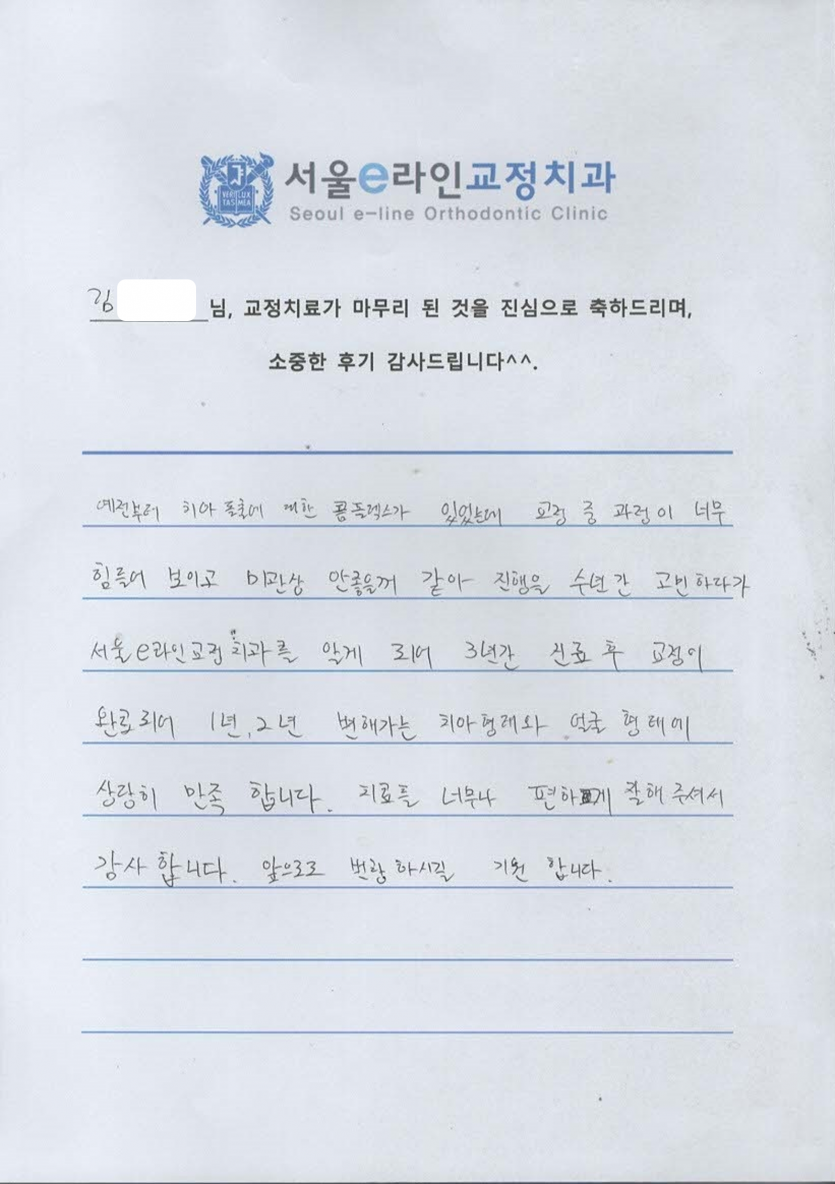 VERI LUX
TAS MEA
서울e라인교정치과
Seoul e-line Orthodontic Clinic
김 님, 교정치료가 마무리 된 것을 진심으로 축하드리며,
소중한 후기 감사드립니다^^.
예전부터 치아 돌출에 대한 콤플렉스가 있었는데 교정 중 과정이 너무
힘들어 보이고 미관상 안좋을꺼 같아 진행을 수년간 고민하다가
서울e라인교정치과를 알게 되어 3년간 진료 후 교정이
완료되어 1년, 2년 변해가는 치아형태와 얼굴 형태에
상당히 만족 합니다. 치료를 너무나 편하게 잘해 주셔서
감사 합니다. 앞으로도 번창 하시길 기원 합니다.